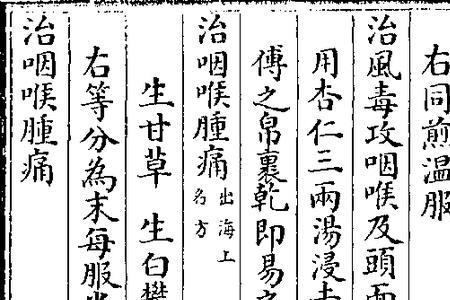 右同煎温服
治風毒攻咽喉及頭面
用杏仁三兩湯浸去
傅之帛裹乾即易之
治咽喉腫痛出海上名方
生甘草 生白礬
右等分為末每服半
治咽喉腫痛